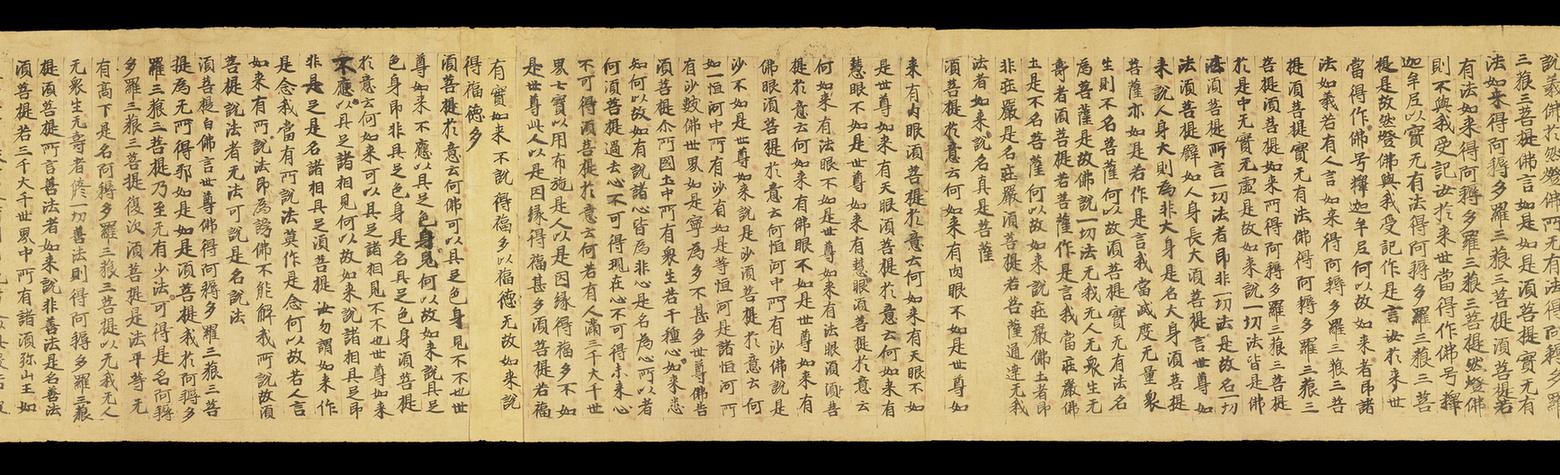 說義佛於然燈佛所无有法得阿耨多羅
三藐三菩提佛言如是如是須菩提實无有
法如来得阿耨多羅三藐三菩提須菩提若
有法如来得阿耨多羅三藐三菩提然燈佛
則不與我受記汝於来世當得作佛号釋
迦牟尼以實无有法得阿耨多羅三藐三菩
提是故然燈佛與我受記作是言汝於来世
當得作佛号釋迦牟尼何以故如来者即諸
法如義若有人言如来得阿耨多羅三藐三菩
提須菩提實无有法佛得阿耨多羅三藐三
菩提須菩提如来所得阿耨多羅三藐三菩提
於是中无實无虛是故如来說一切法皆是佛
法須菩提所言一切法者即非一切法是故名一切
法須菩提辟如人身長大須菩提言世尊如
来說人身大則為非大身是名大身須菩提
菩薩亦如是若作是言我當滅度无量衆
生則不名菩薩何以故須菩提實无有法名
為菩薩是故佛說一切法无我无人无衆生无
壽者須菩提若菩薩作是言我當莊嚴佛
土是不名菩薩何以故如来說莊嚴佛土者即
非莊嚴是名莊嚴須菩提若菩薩通達无我
法者如来說名真是菩薩
須菩提於意云何如来有肉眼不如是世尊如
来有肉眼須菩提於意云何如来有天眼不如
是世尊如来有天眼須菩提於意云何如来有
慧眼不如是世尊如来有慧眼須菩提於意云
何如来有法眼不如是世尊如来有法眼須菩
提於意云何如来有佛眼不如是世尊如来有
佛眼須菩提於意云何恒河中所有沙佛說是
沙不如是世尊如来說是沙須菩提於意云何
如一恒河中所有沙有如是等恒河是諸恒河所
有沙數佛世界如是寧為多不甚多世尊佛告
須菩提尒所國土中所有衆生若干種心如来悉
知何以故如来說諸心皆為非心是名為心所以者
何須菩提過去心不可得現在心不可得未来心
不可得須菩提於意云何若有人滿三千大千世
界七寶以用布施是人以是因緣得福多不如
是世尊此人以是因緣得福甚多須菩提若福
有實如来不說得福多以福德无故如来說
得福德多
須菩提於意云何佛可以具足色身見不不也世
尊如来不應以具足色身見何以故如来說具足
色身即非具足色身是名具足色身須菩提
於意云何如来可以具足諸相見不不也世尊如来
不應以具足諸相見何以故如来說諸相具足即
非具足是名諸相具足須菩提汝勿謂如来作
是念我當有所說法莫作是念何以故若人言
如来有所說法即為謗佛不能解我所說故須
菩提說法者无法可說是名說法
須菩提白佛言世尊佛得阿耨多羅三藐三菩
提為无所得耶如是如是須菩提我於阿耨多
羅三藐三菩提乃至无有少法可得是名阿耨
多羅三藐三菩提復次須菩提是法平等无
有高下是名阿耨多羅三藐三菩提以无我无人
无衆生无壽者修一切善法則得阿耨多羅三藐
三菩提須菩提所言善法者如来說非善法是名善法
須菩提若三千大千世界中所有諸須弥山王如